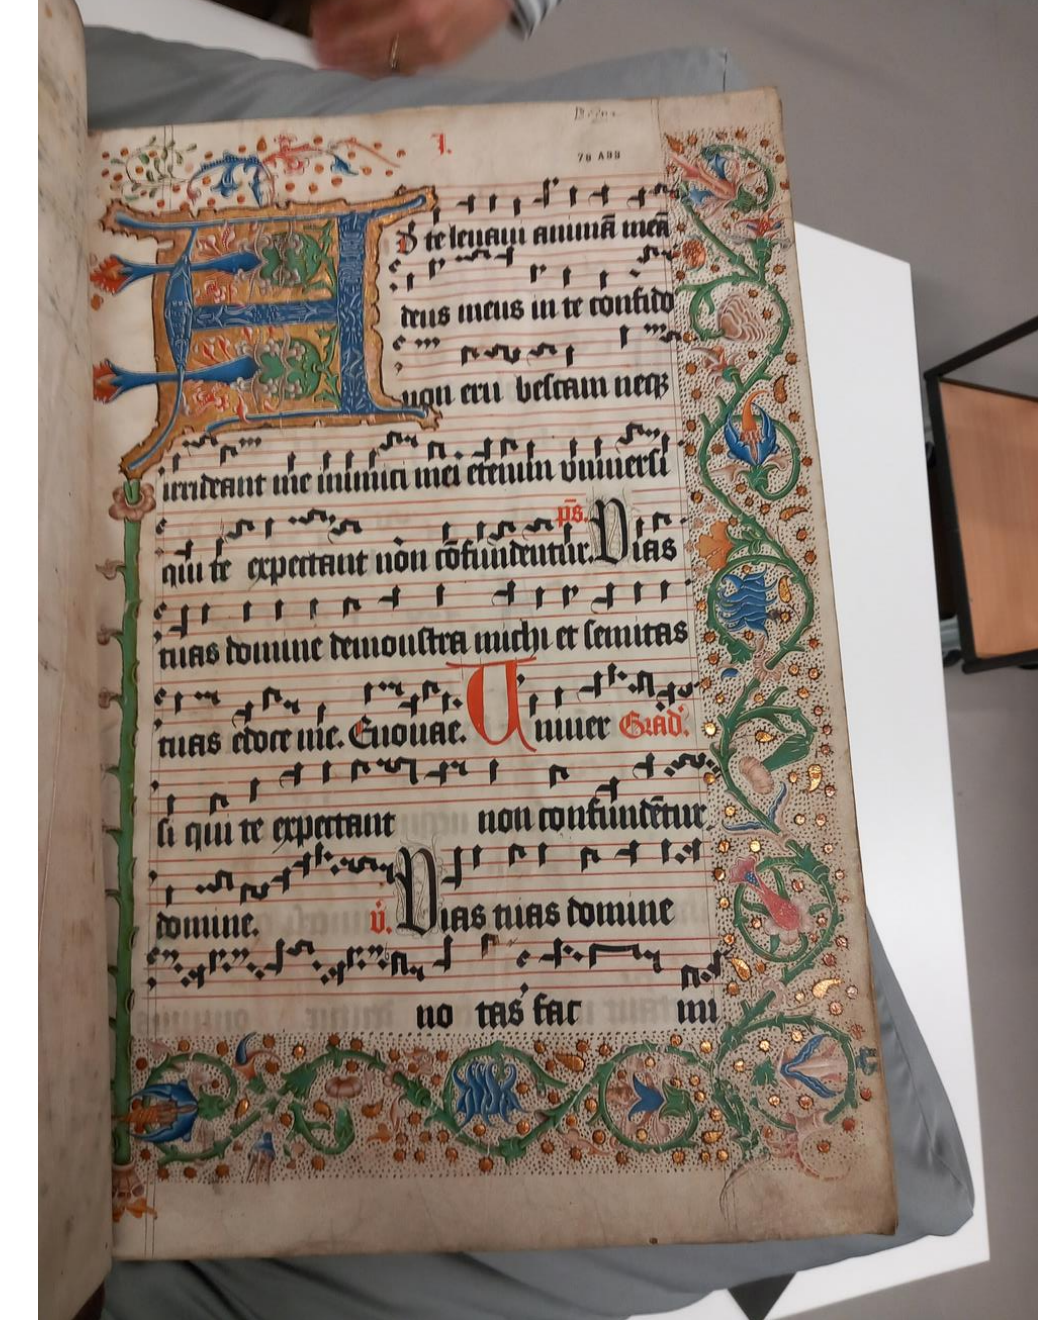 I.
78 A 99
AD te leuaui animā meā
deus meus in te confido
non eru bescam neqꝫ
irrideant me inimici mei etenim vniuersi
qui te expectant non cōfundentur. p̄s. Vias
tuas domine demonstra michi et semitas
tuas edoce me. Euouae. Uniuer Grad'.
si qui te expectant non confundētur
domine. v̇. Vias tuas domine
no tas fac mi